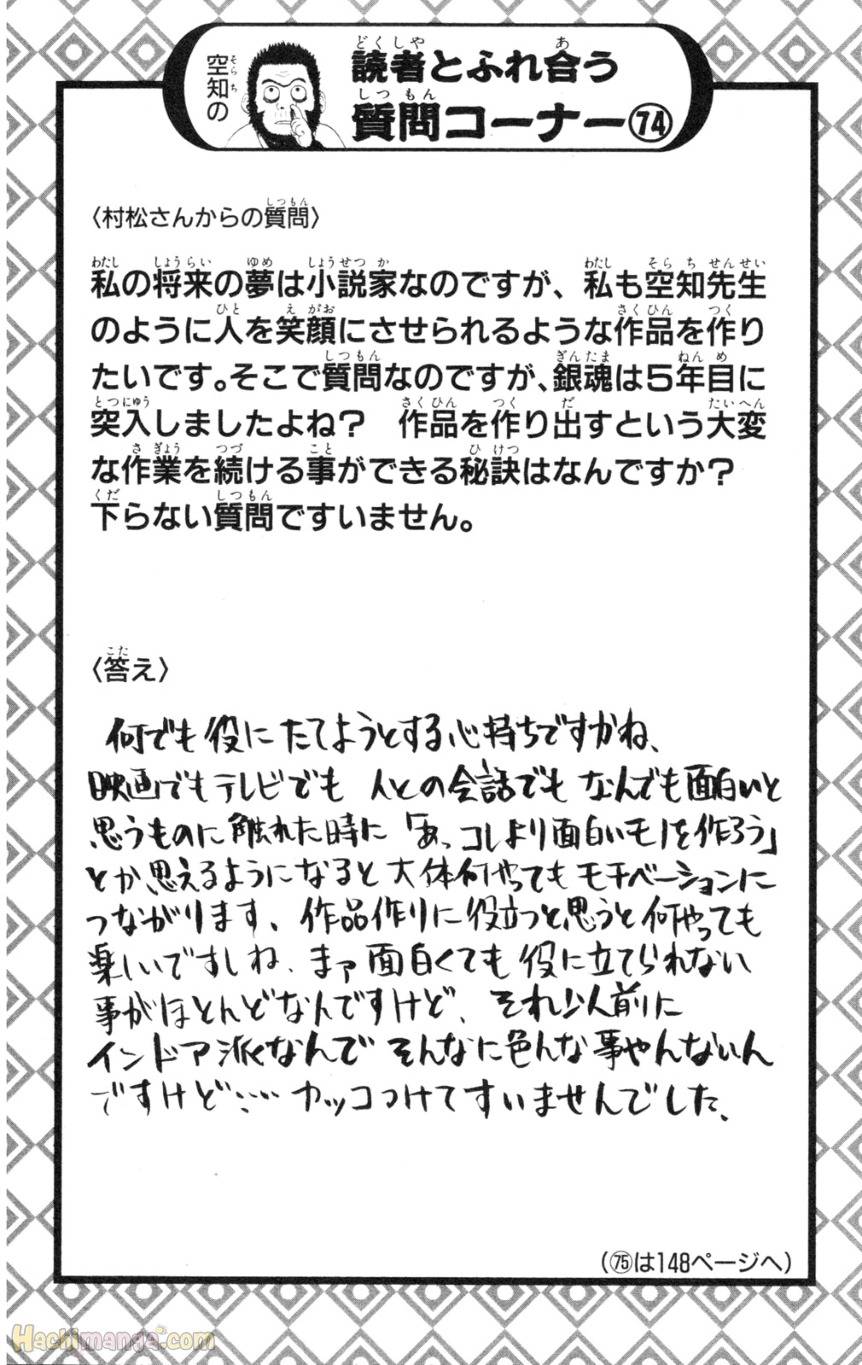 空知の
読者とふれ合う
質問コーナー74
〈村松さんからの質問〉
私の将来の夢は小説家なのですが、私も空知先生
のように人を笑顔にさせられるような作品を作り
たいです。そこで質問なのですが、銀魂は5年目に
突入しましたよね?　作品を作り出すという大変
な作業を続ける事ができる秘訣はなんですか?
下らない質問ですいません。
〈答え〉
何でも役にたてようとする心持ちですかね、
映画でもテレビでも人との会話でもなんでも面白いと
思うものに触れた時に「あっコレより面白いモノを作ろう」
とか思えるようになると大体何やってもモチベーションに
つながります、作品作りに役立つと思うと何やっても
楽しいですしね、まァ面白くても役に立てられない
事がほとんどなんですけど、それ以前に
インドア派なんでそんなに色んな事やんないん
ですけど…カッコつけてすいませんでした、
(75は148ページへ)
Hachimanga.com